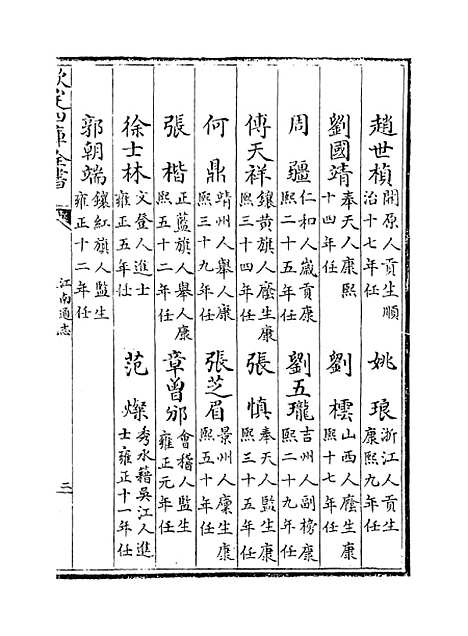 趙世楨 開原人貢生順治十七年任
姚琅 浙江人貢生康熙九年任
劉國靖 奉天人康熙十四年任
劉橒 山西人廕生康熙十七年任
周疆 仁和人歲貢康熙二十五年任
劉五瓏 吉州人副榜康熙二十九年任
傅天祥 鑲黄旗人廕生康熙三十四年任
張慎 奉天人監生康熙三十五年任
何鼎 靖州人舉人康熙三十九年任
張芝眉 景州人廪生康熙五十年任
張楷 正藍旗人舉人康熙五十二年任
章曽𨚗 會稽人監生雍正元年任
徐士林 文登人進士雍正五年任
范燦 秀水藉吴江人進士雍正十一年任
郭朝端 鑲紅旗人監生雍正十二年任
欽定四庫全書
江南通志
三